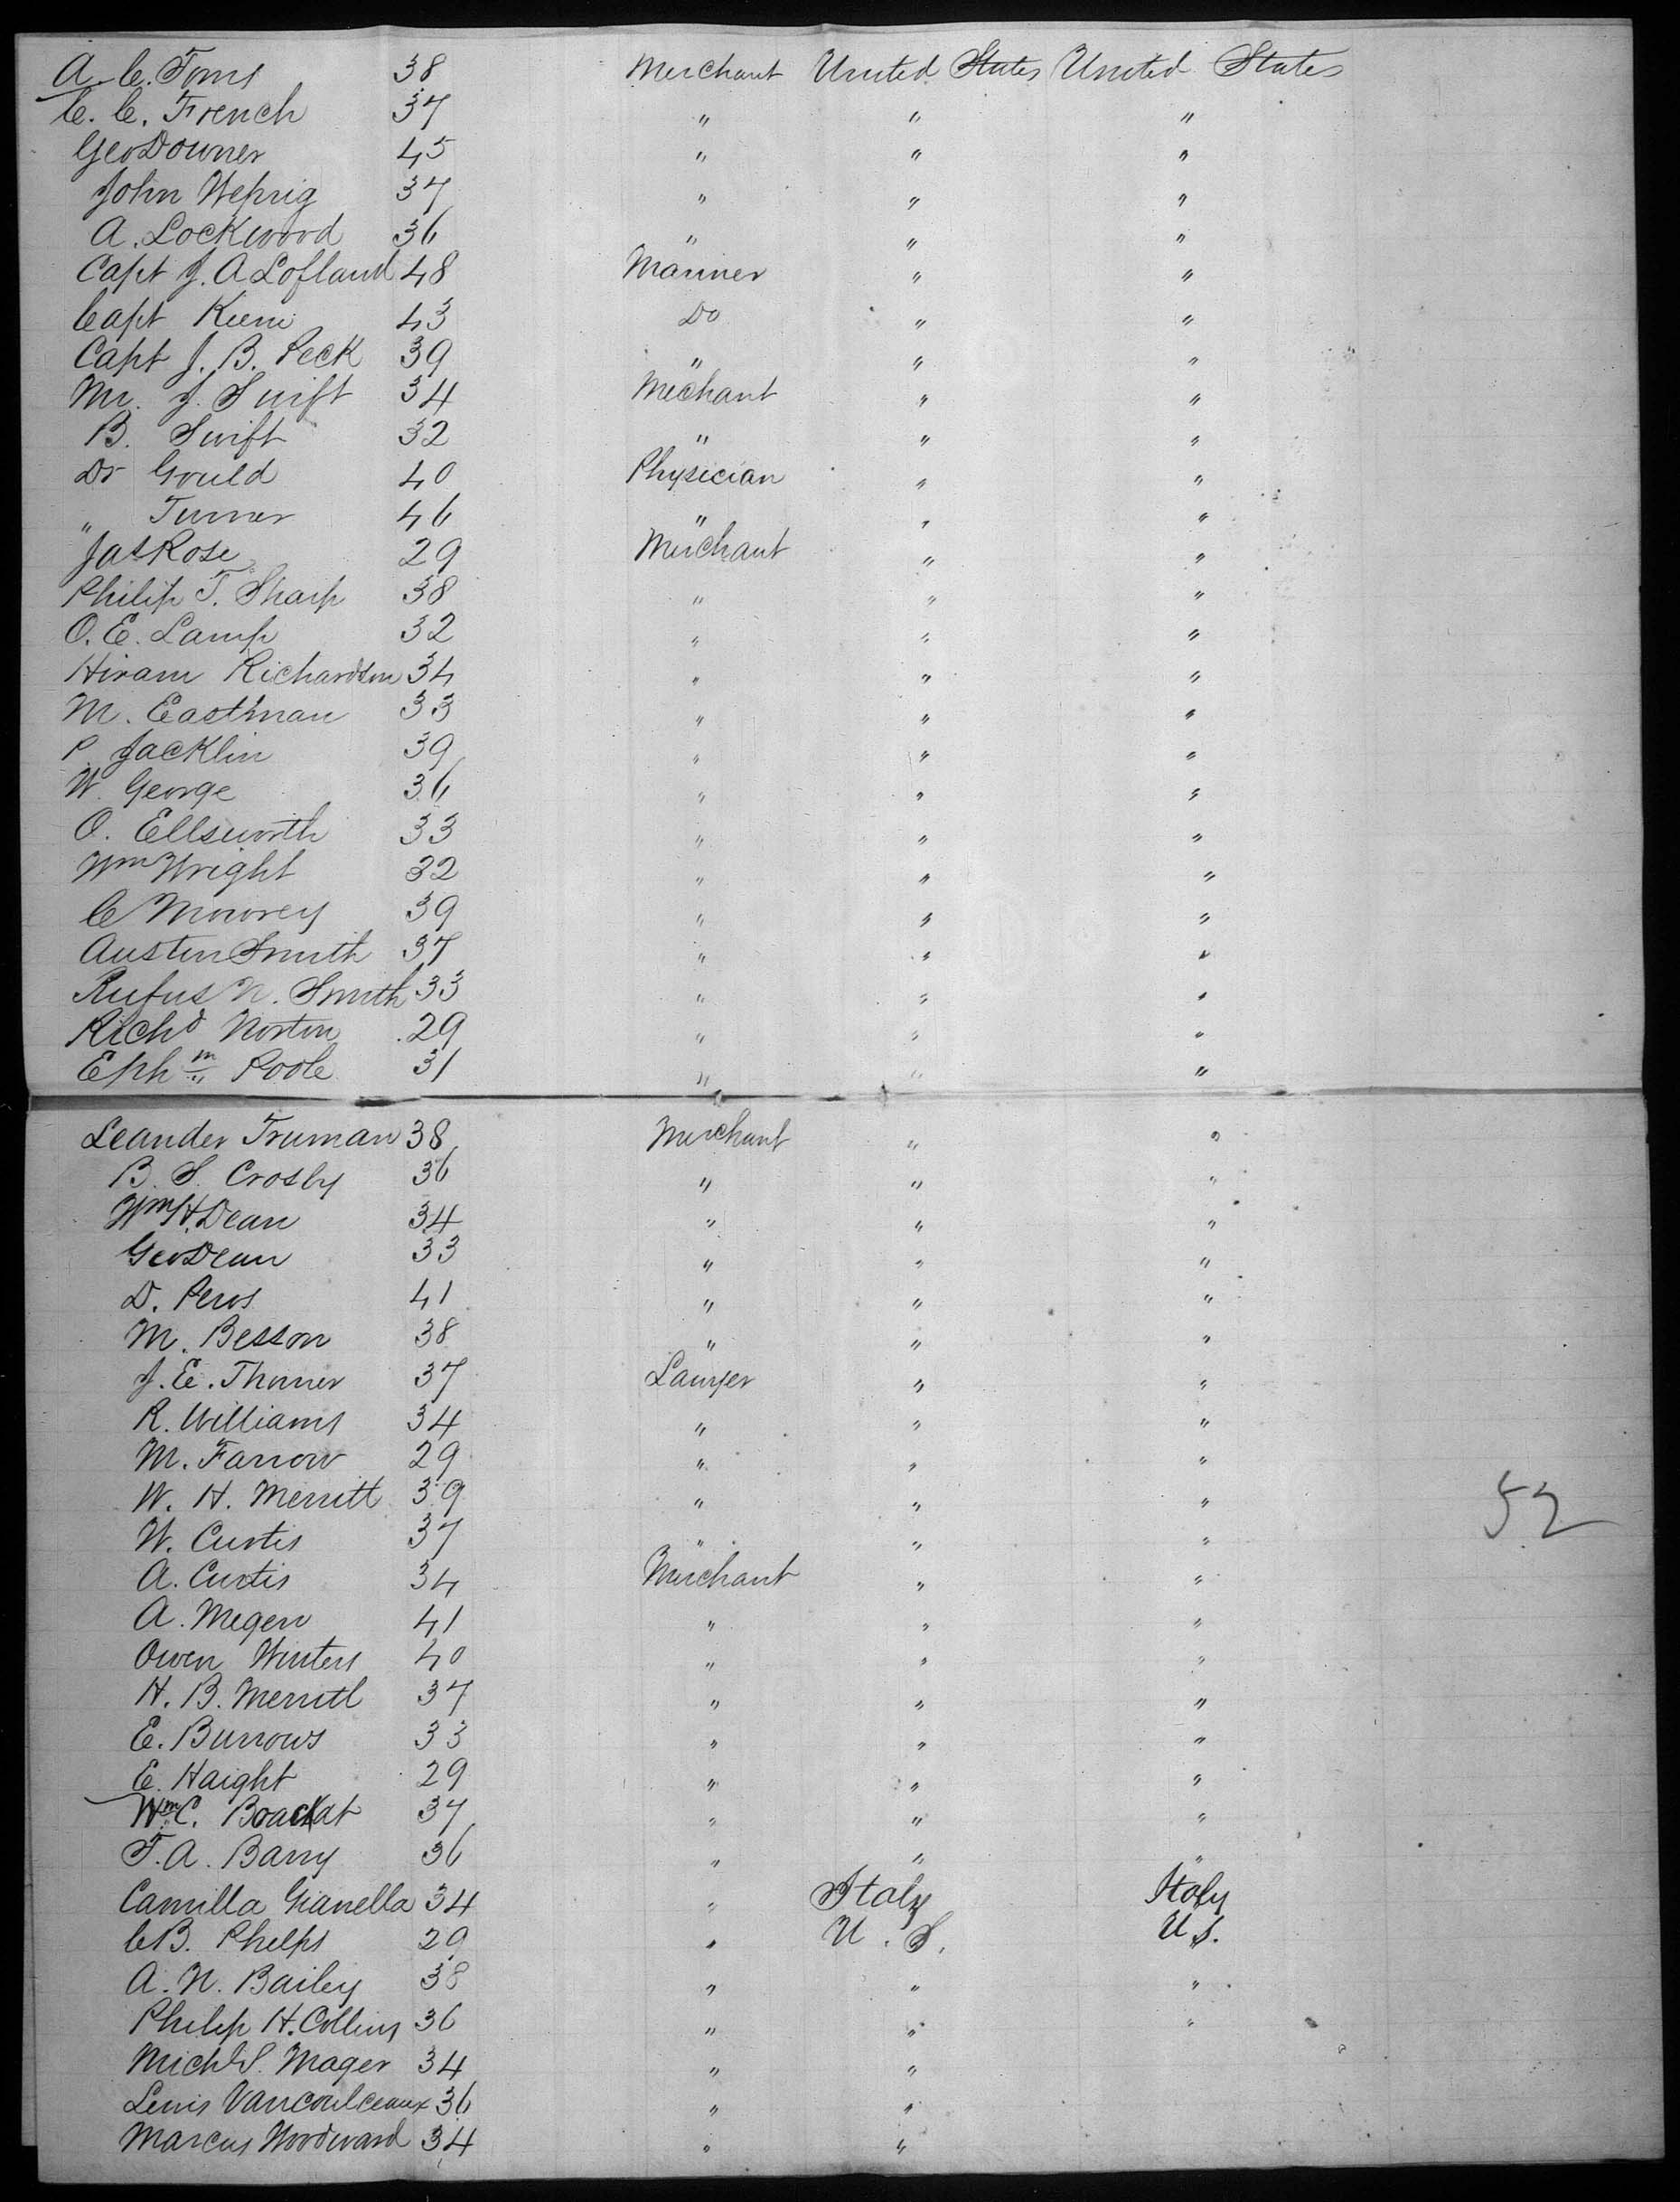 A. C. Toms 38 Merchant United States United States
C. C. French 37 " " "
Geo Downer 45 " " "
John Weprig 37 " " "
A. Lockwood 36 " " "
Capt J. A Lofland 48 Mariner " "
Capt 43 Do " "
Capt J. B. Peck 39 " " "
Mr. J. Swift 34 Mechant " "
B. Swift 32 " " "
Dr Gould 40 Physician " "
" Turner 46 " " "
Jas Rose 29 Merchant " "
Philip T. Sharp 38 " " "
O. E. Lamp 32 " " "
Hiram Richardson 34 " " "
M. Eastman 33 " " "
P. Jacklin 39 " " "
W. George 36 " " "
O. Ellsworth 33 " " "
Wm Wright 32 " " "
C Mowrey 39 " " "
Austin Smith 37 " " "
Rufus N. Smith 33 " " "
Richd Norton 29 " " "
Ephm Poole 31 " " "
Leander Truman 38 Merchant " "
B. S. Crosby 36 " " "
Wm H. Dean 34 " " "
Geo Dean 33 " " "
D. 41 " " "
M. Besson 38 " " "
J. E. 37 Lawyer " "
R. Williams 34 " " "
M. Farrow 29 " " "
W. H. Merritt 39 " " "
52
W. Curtis 37 " " "
A. Curtis 34 Merchant " "
A. Megen 41 " " "
Owen Winters 40 " " "
H. B. Merritt 37 " " "
E. Burrows 33 " " "
E. Haight 29 " " "
Wm C. 37 " " "
T. A. Barry 36 " " "
Camilla Gianella 34 " Italy Italy
C B. Phelps 29 " U. S. U S.
A. N. Bailey 38 " " "
Philip H. Collins 36 " " "
Michl S. Mager 34 " "
Lewis 36 " "
Marcus Woodward 34 " "